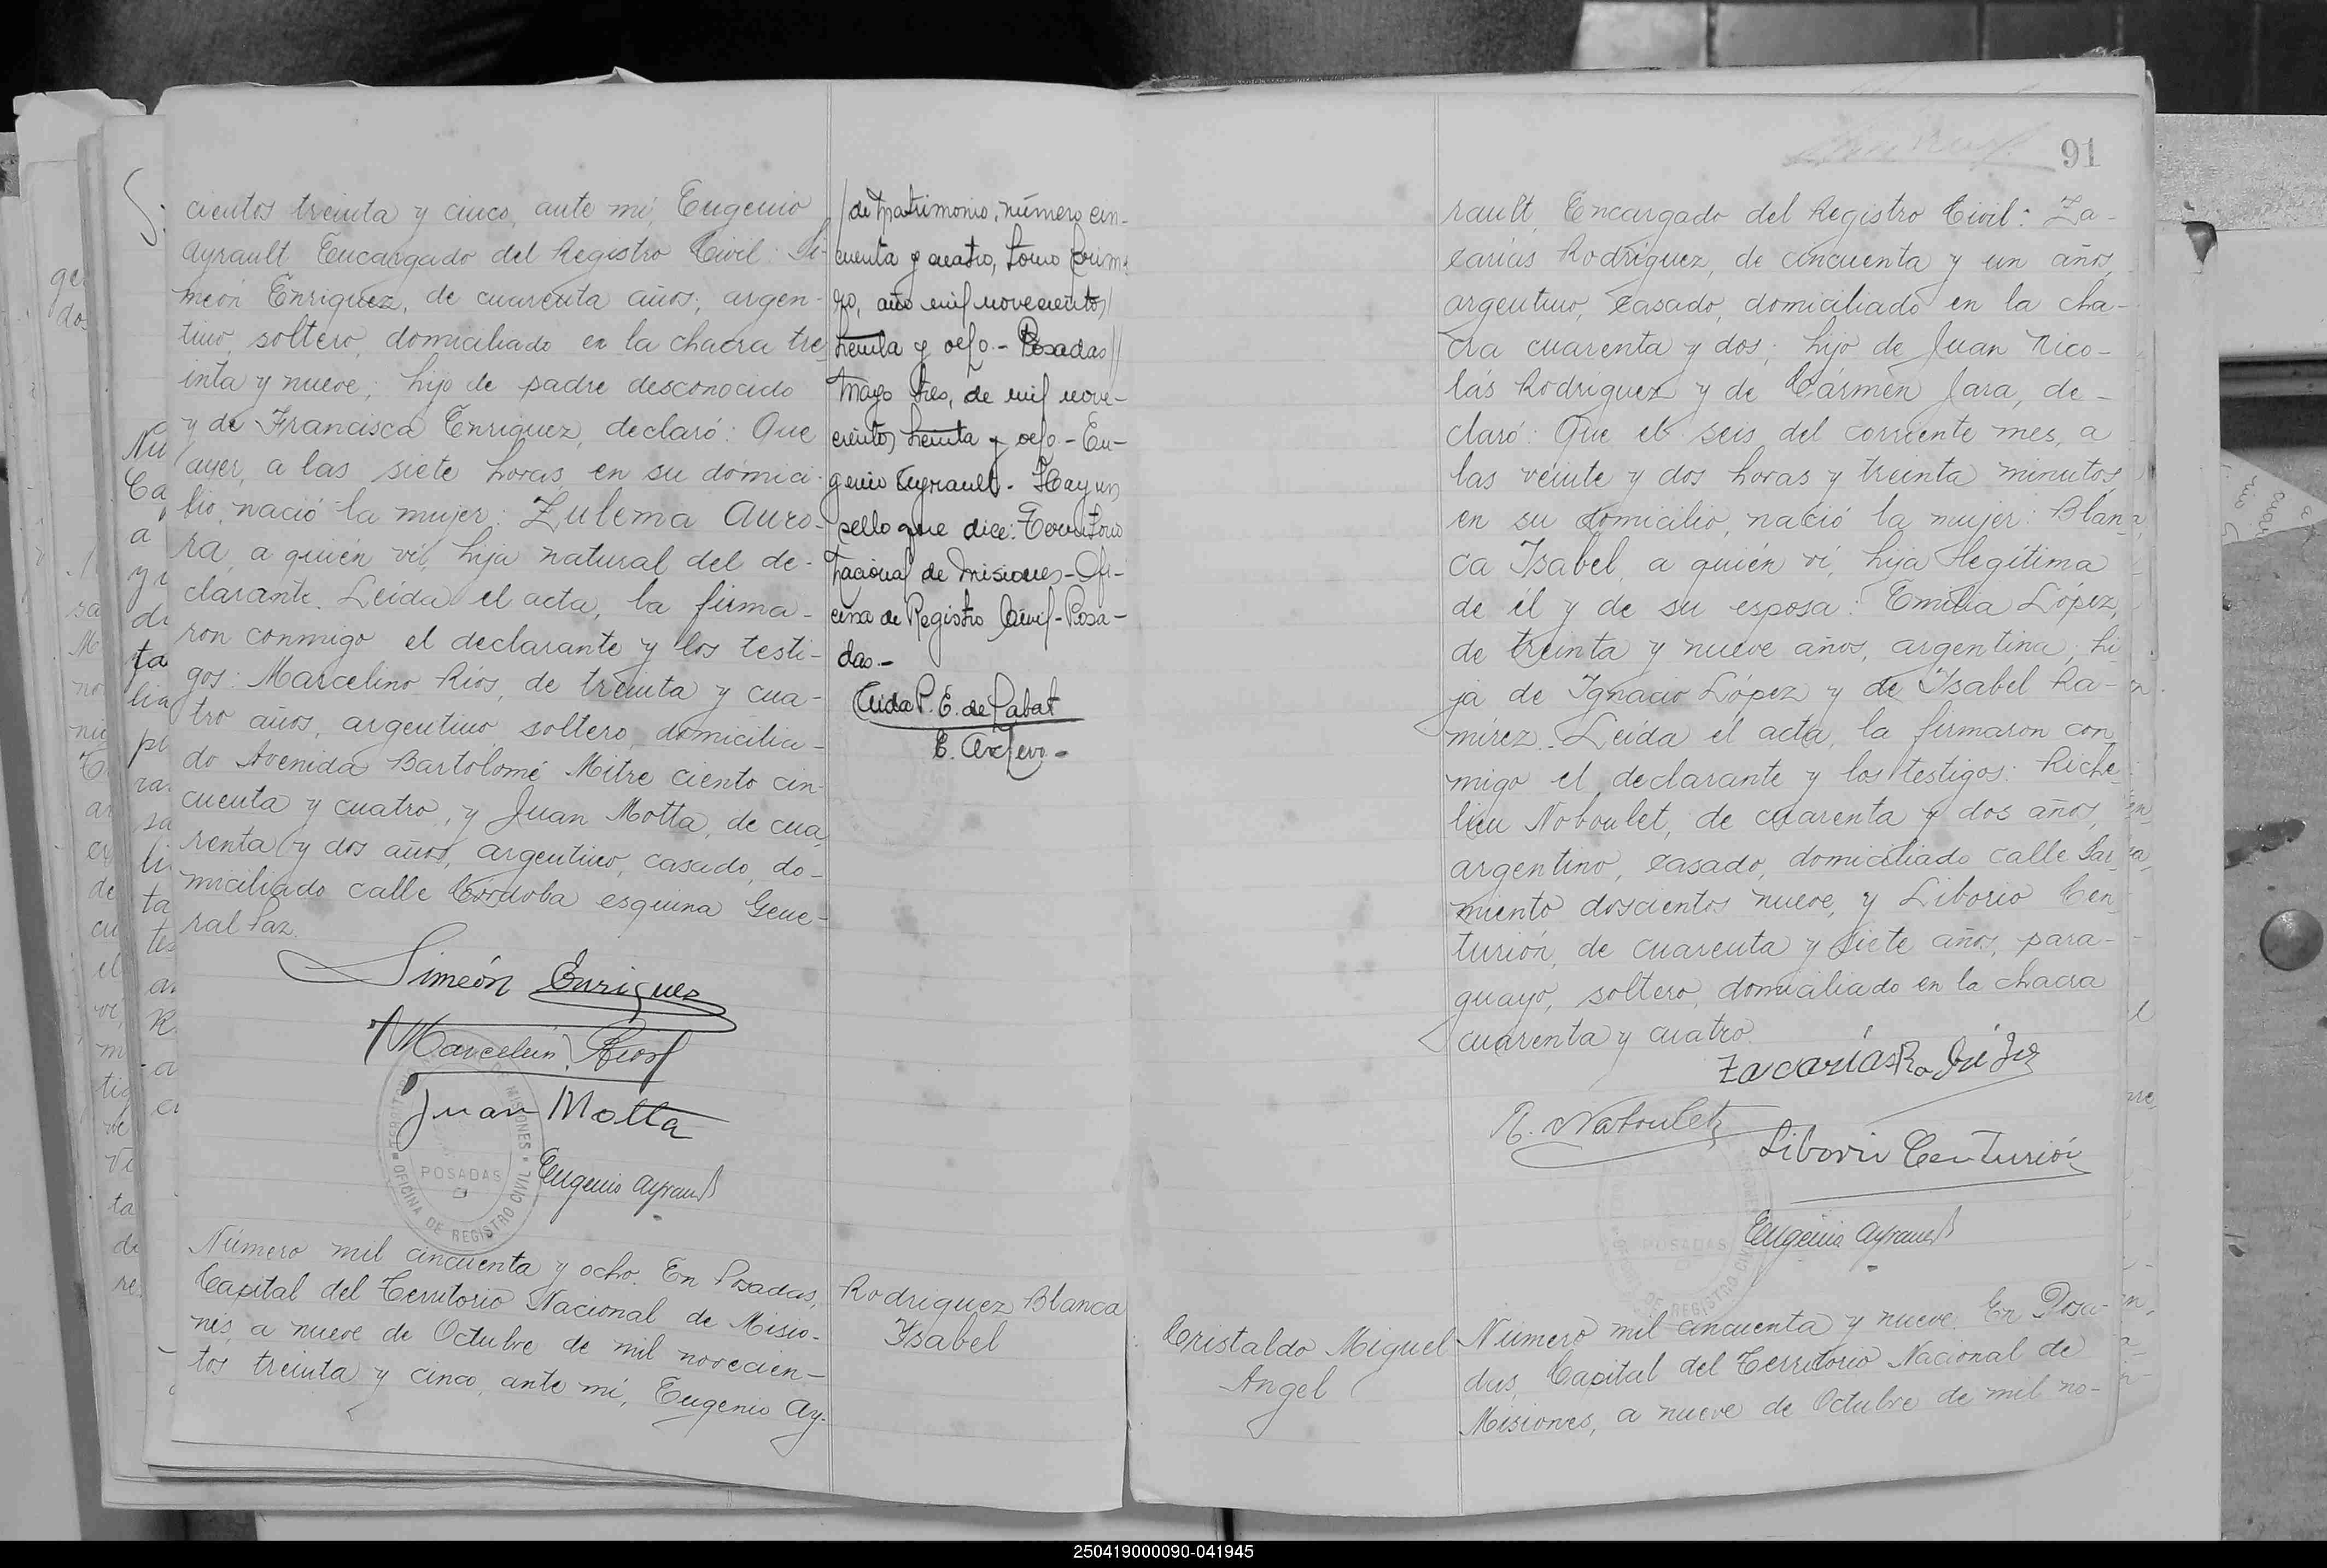 cientos treinta y cinco, ante mi, Eugenio
Ayrault Encargado del Registro Civil: Si-
meón Enriquez, de cuarenta años, argen-
tino, soltero, domiciliado en la chacra tre
inta y nueve; hijo de padre desconocido
y de Francisca Enriquez, declaró: Que
ayer, a las siete horas, en su domici-
lio, nació la mujer: Zulema Auro-
ra, a quién ví, hija natural del de-
clarante. Leída el acta, la firma-
ron conmigo el declarante y los testi-
gos: Marcelino Ríos, de treinta y cua-
tro años, argentino soltero, domicilia-
do Avenida Bartolomé Mitre ciento cin-
cuenta y cuatro, y Juan Motta, de cua
renta y dos años, argentino, casado, do-
miciliado calle Córdoba esquina Gene-
ral Paz.
Simeón Enriquez
Marcelin Rios
Juan Motta
Eugenio Ayrault
POSADAS
OFICINA DE REGISTRO CIVIL
DE MISIONES
Número mil cincuenta y ocho. En Posadas,
Capital del Territorio Nacional de Misio-
nes, a nueve de Octubre de mil novecien-
tos treinta y cinco, ante mí, Eugenio Ay-
de matrimonio, número cin-
cuenta y cuatro, tomo prime
ro, año mil novecientos
treinta y ocho.- Posadas
Mayo tres, de mil nove-
cientos treinta y ocho.- Eu-
genio Ayrault.- Hay un
sello que dice: Territorio
Nacional de Misiones-Ofi-
cina de Registro Civil-Posa-
das.-
Rodriguez Blanca
Ysabel
91
rault, Encargado del Registro Civil: Za-
carías Rodríguez, de cincuenta y un años,
argentino, casado, domiciliado en la cha-
cra cuarenta y dos; hijo de Juan Nico-
lás Rodriguez y de Cármen Jara, de-
claró: Que el seis del corriente mes, a
las veinte y dos horas y treinta minutos,
en su domicilio, nació la mujer: Blan-
ca Ysabel, a quién ví, hija legítima
de él y de su esposa: Emilia López,
de treinta y nueve años, argentina; hi
ja de Ygnacio López y de Ysabel Ra-
mírez. Leída el acta, la firmaron con
migo el declarante y los testigos: Riche-
lieu Noboulet, de cuarenta y dos años,
argentino, casado, domiciliado calle Sar
miento doscientos nueve, y Liborio Cen-
turión, de cuarenta y siete años, para-
guayo, soltero, domiciliado en la chacra
cuarenta y cuatro.
Zacarías
R. Naboulet
Liborio Centurión
Eugenio Ayrault
POSADAS
Cristaldo Miguel
Angel
Número mil cincuenta y nueve. En Posa-
das, Capital del Territorio Nacional de
Misiones, a nueve de Octubre de mil no-
250419000090-041945